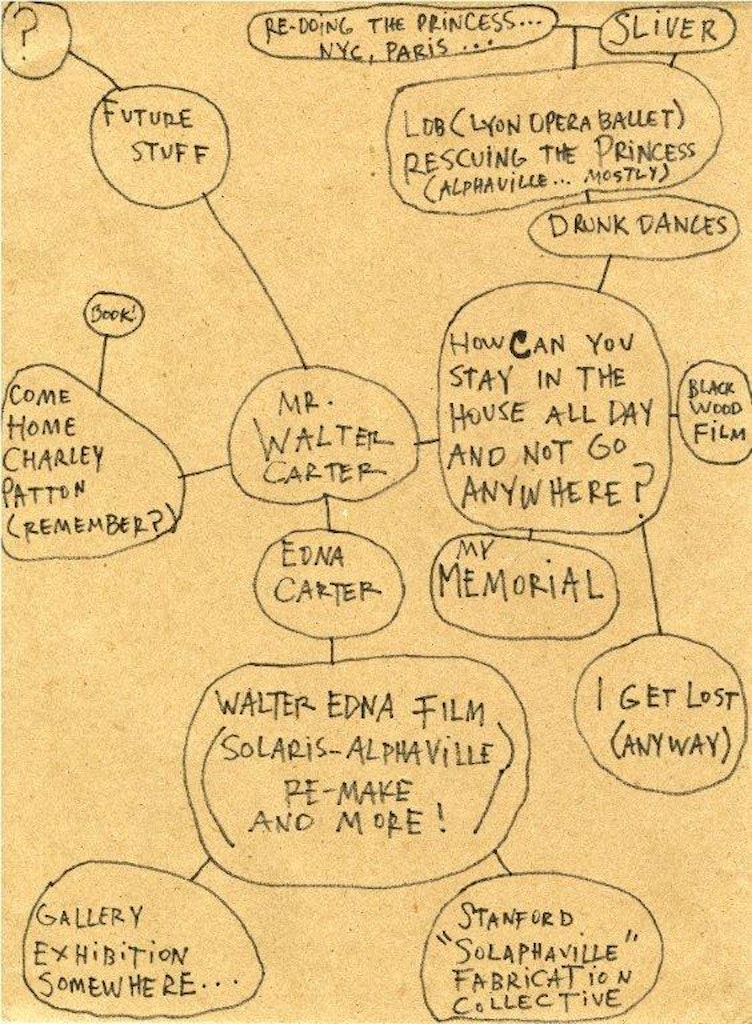 ?
RE-DOING THE PRINCESS...
NYC, PARIS ...
SLIVER
FUTURE
STUFF
LOB (LYON OPERA BALLET)
RESCUING THE PRINCESS
(ALPHAVILLE... MOSTLY)
DRUNK DANCES
BOOK!
COME
HOME
CHARLEY
PATTON
(REMEMBER?)
MR.
WALTER
CARTER
HOW CAN YOU
STAY IN THE
HOUSE ALL DAY
AND NOT GO
ANYWHERE?
BLACK
WOOD
FILM
EDNA
CARTER
MY
MEMORIAL
I GET LOST
(ANYWAY)
WALTER EDNA FILM
(SOLARIS-ALPHAVILLE)
RE-MAKE
AND MORE!
GALLERY
EXHIBITION
SOMEWHERE...
STANFORD
"SOLAPHAVILLE"
FABRICATION
COLLECTIVE